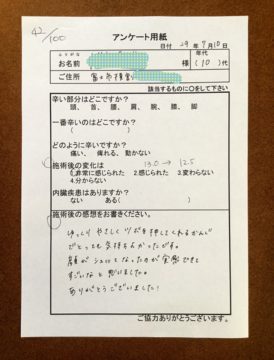 42/100
アンケート用紙
日付 29年9月10日
ふりがな
お名前 様
年代 (10)代
ご住所 富士市
該当するものに○をして下さい
辛い部分はどこですか?
頭、首、腰、肩、腕、膝、脚
一番辛いのはどこですか?
( )
どのように辛いですか?
痛い、痺れる、動かない
施術後の変化は 13.0 → 12.5
1.非常に感じられた 2.感じられた 3.変わらない
4.分からない
内臓疾患はありますか?
ない ある( )
施術後の感想をお書きください。
ゆっくり やさしく ツボを押してくれるかんじ
がとっても気持ちよかったです。
肩がシュッとなったのが実感できて
すごいなと思いました。
ありがとうございました!
ご協力ありがとうございます。